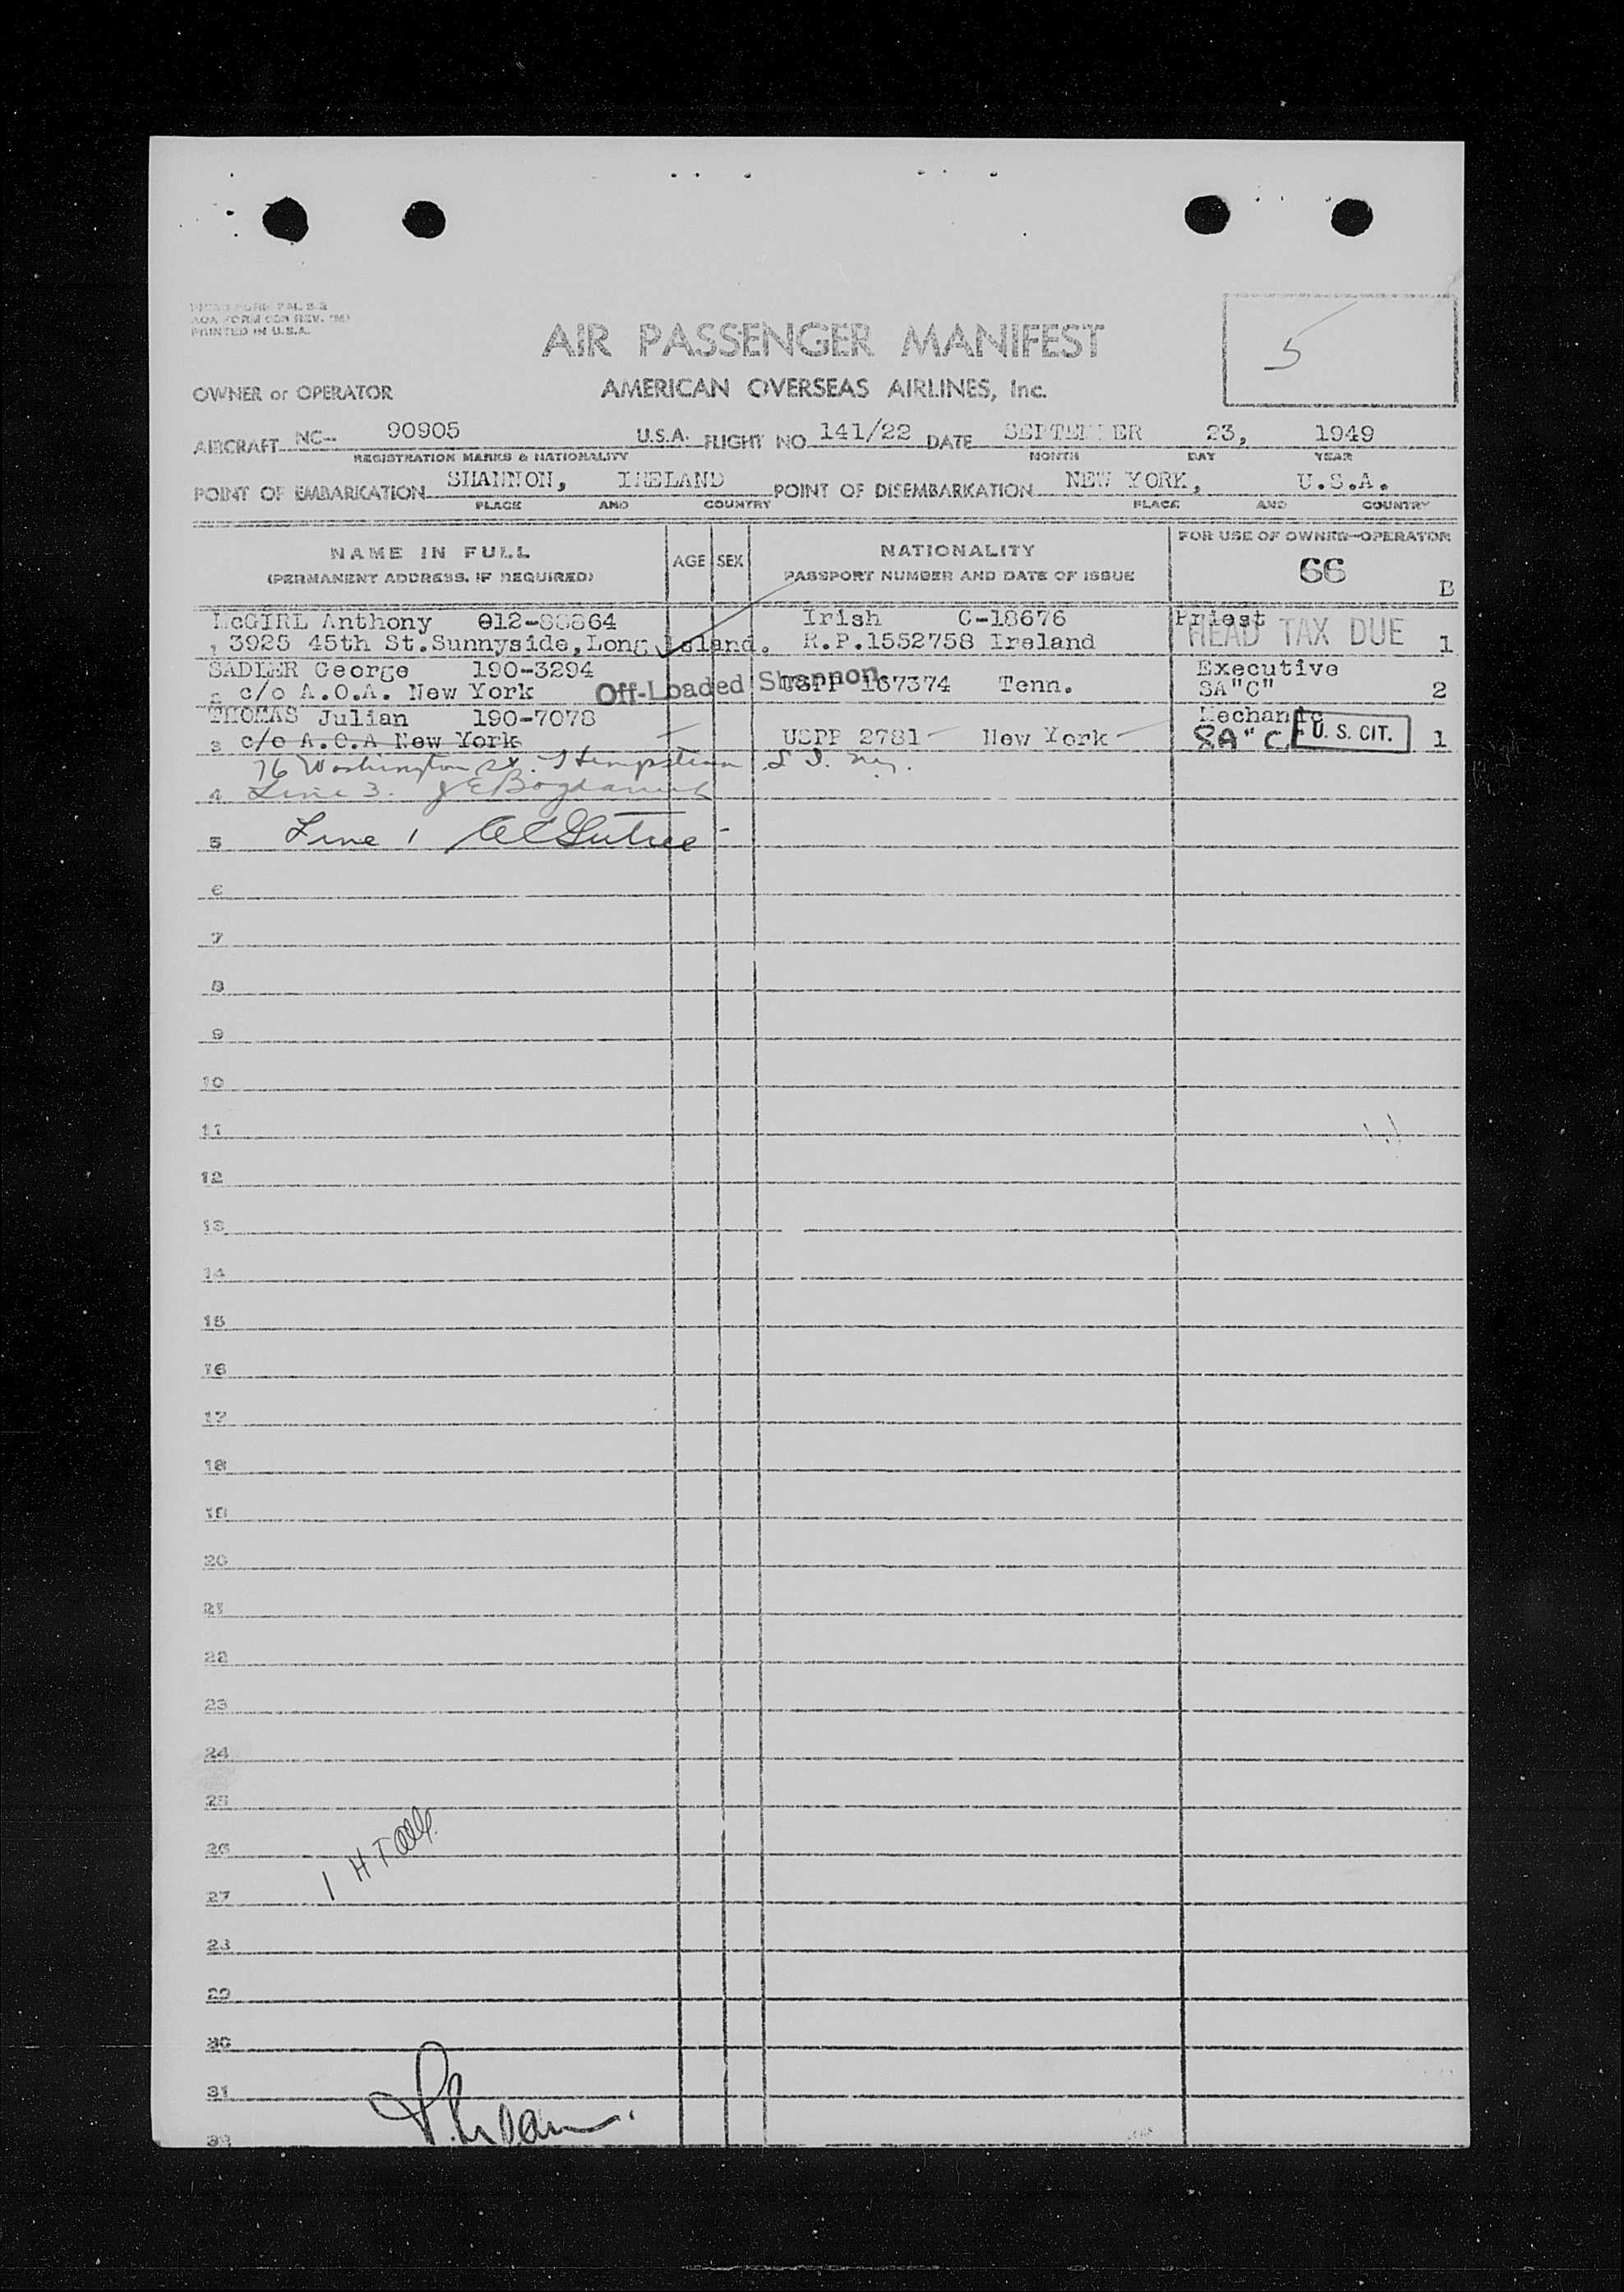 PRINTED IN U.S.A.
AIR PASSENGER MANIFEST
5
OWNER or OPERATOR AMERICAN OVERSEAS AIRLINES, Inc.
AIRCRAFT NC-- 90905 U.S.A. FLIGHT NO. 141/22 DATE SEPTEMBER 23, 1949
REGISTRATION MARKS & NATIONALITY MONTH DAY YEAR
POINT OF EMBARKATION SHANNON, IRELAND POINT OF DISEMBARKATION NEW YORK, U.S.A.
PLACE AND COUNTRY PLACE AND COUNTRY
NAME IN FULL AGE SEX NATIONALITY FOR USE OF OWNER-OPERATOR
(PERMANENT ADDRESS, IF REQUIRED) PASSPORT NUMBER AND DATE OF ISSUE 66 B
McGIRL Anthony Irish C-18676 Priest
3925 45th St.Sunnyside,Long Island. R.P.1552758 Ireland HEAD TAX DUE 1
SADLER George 190-3294 Executive
2 c/o A.O.A. New York Off-Loaded Shannon USPP 167374 Tenn. SA"C" 2
THOMAS Julian 190-7078 Mechanic
3 c/o A.O.A New York USPP 2781 New York SA"C" U. S. CIT. 1
76 Washington St. Hempstead L I. N.Y.
4 Line 3.
5 Line 1
6
7
8
9
10
11
12
13
14
15
16
17
18
19
20
21
22
23
24
25
26
1 HT
27
28
29
30
31
32